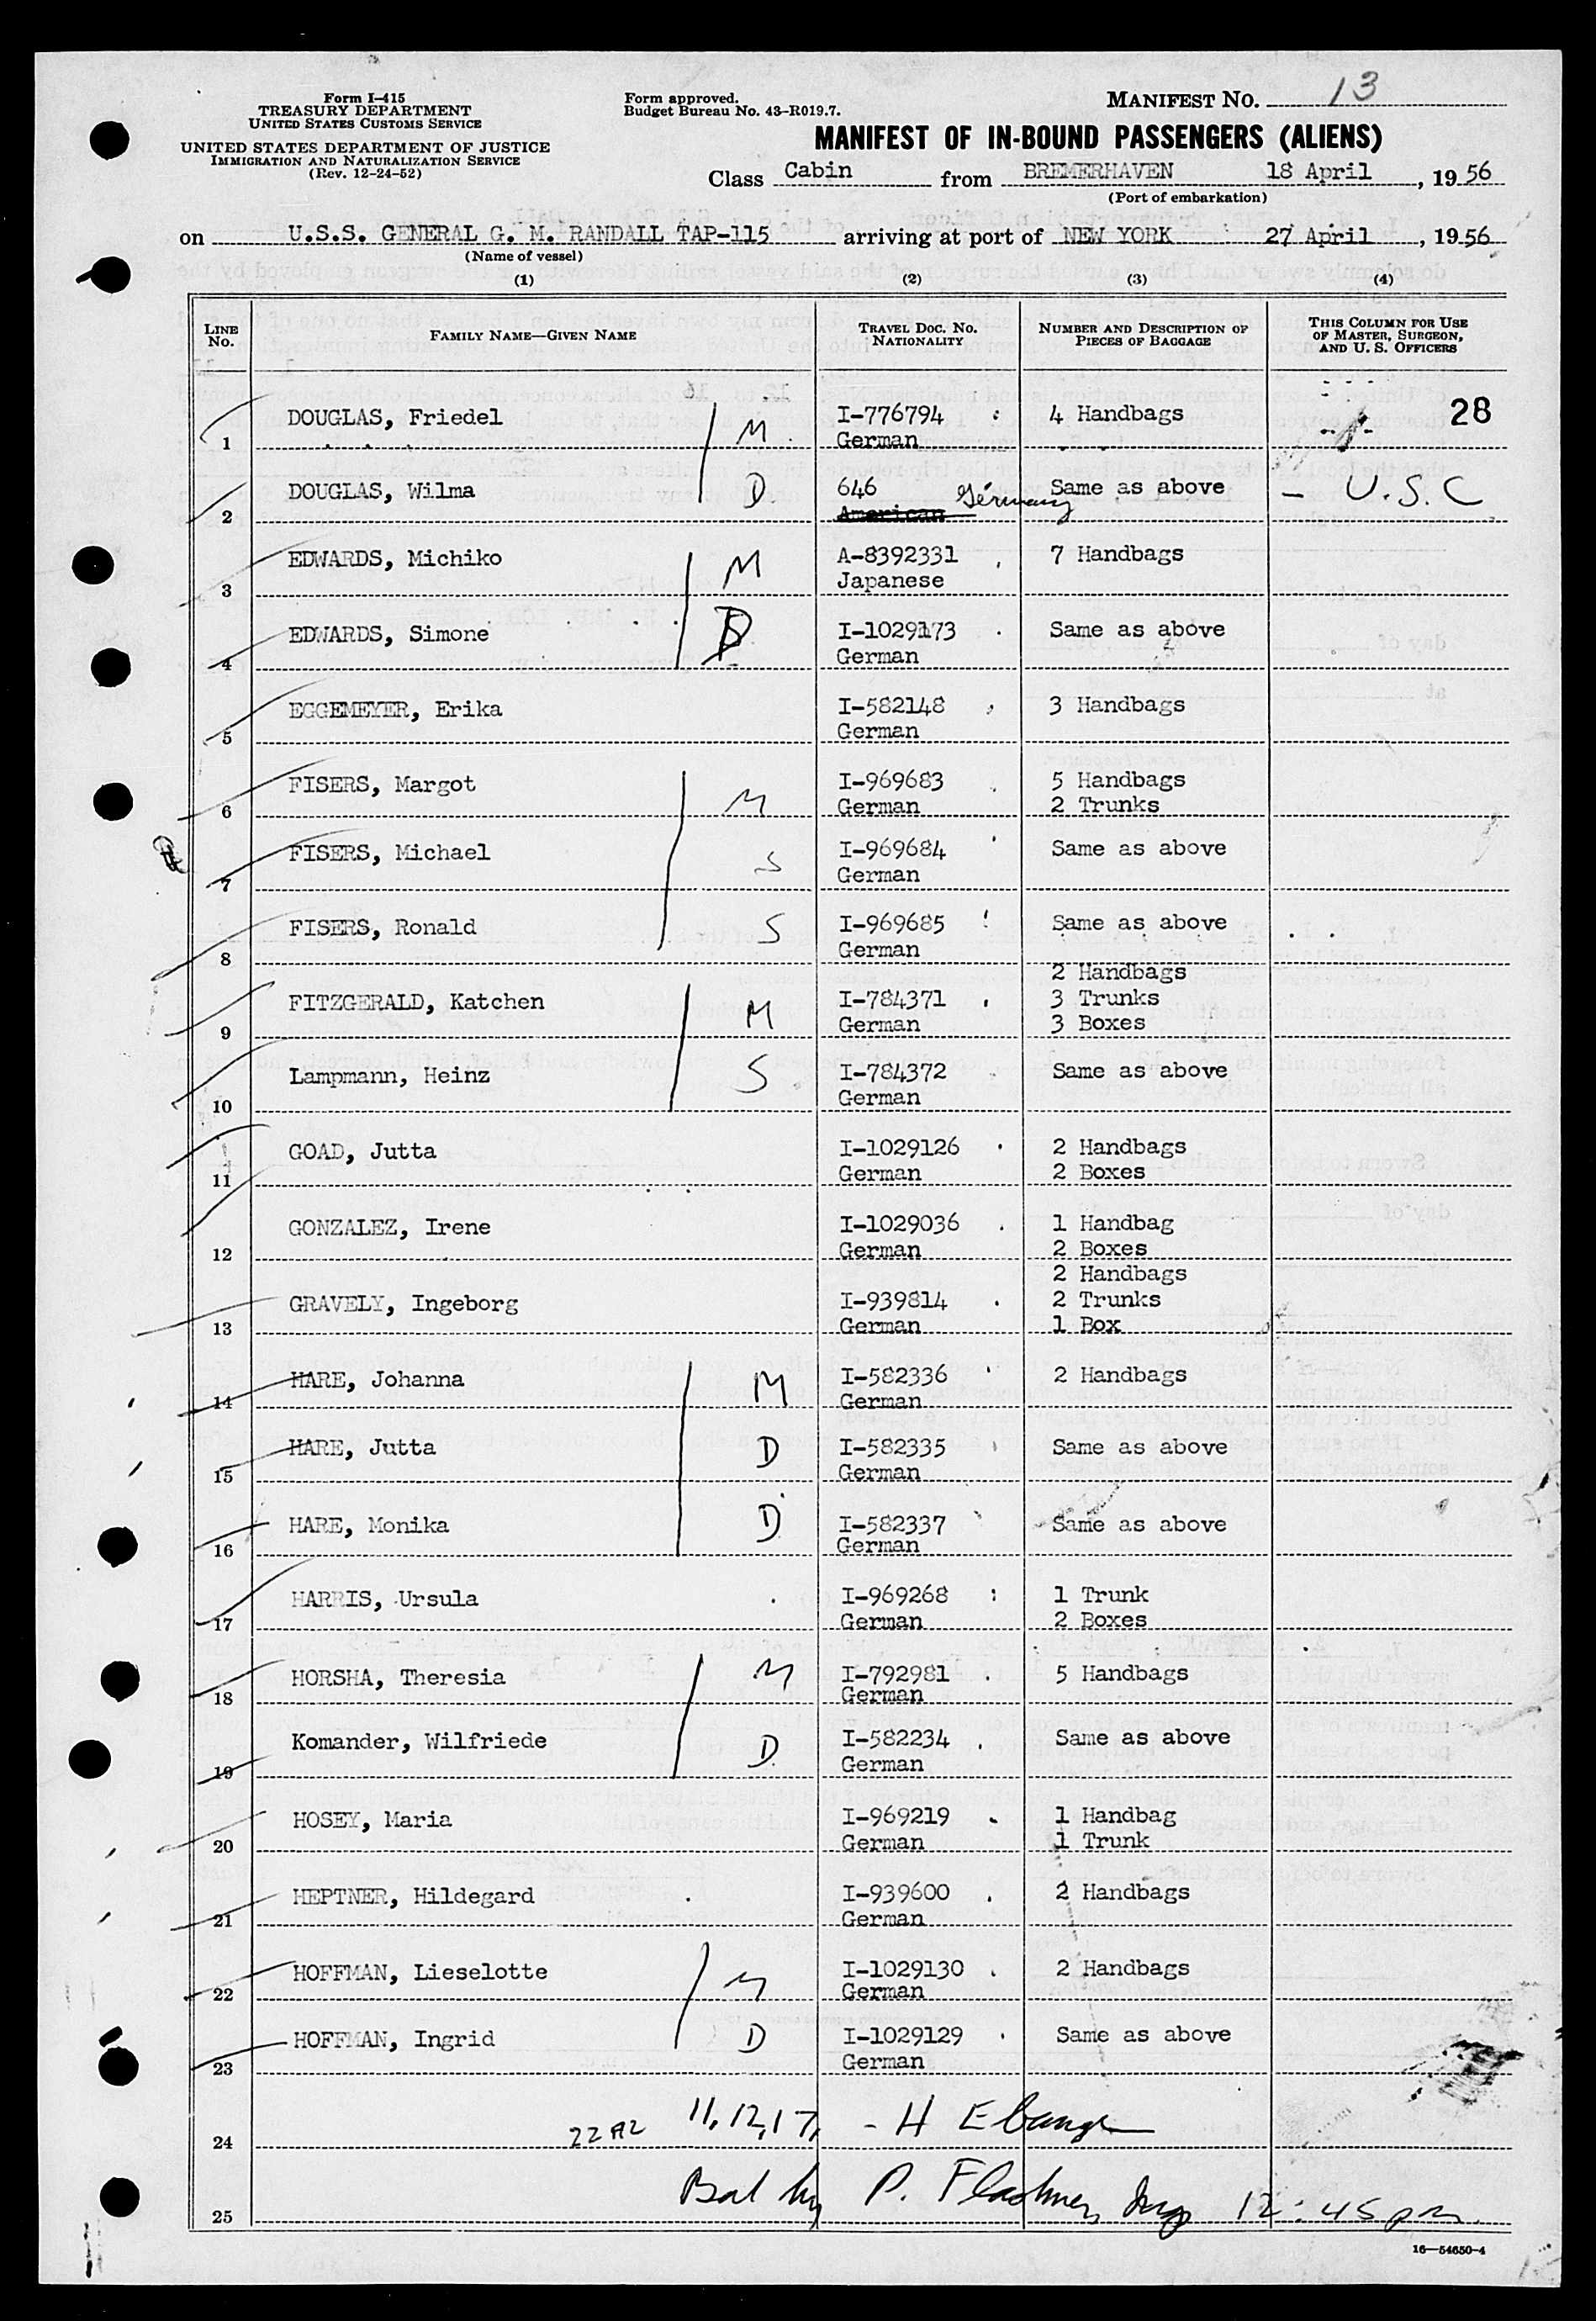 Form I-415
TREASURY DEPARTMENT
UNITED STATES CUSTOMS SERVICE
UNITED STATES DEPARTMENT OF JUSTICE
IMMIGRATION AND NATURALIZATION SERVICE
(Rev. 12-24-52)
Form approved.
Budget Bureau No. 43-R019.7.
MANIFEST NO. 13
MANIFEST OF IN-BOUND PASSENGERS (ALIENS)
Class Cabin from BREMERHAVEN 18 April, 1956
(Port of embarkation)
on U.S.S. GENERAL G. M. RANDALL TAP-115 arriving at port of NEW YORK 27 April, 1956
(Name of vessel)
(1) (2) (3) (4)
LINE No. FAMILY NAME—GIVEN NAME TRAVEL DOC. NO. NATIONALITY NUMBER AND DESCRIPTION OF PIECES OF BAGGAGE THIS COLUMN FOR USE OF MASTER, SURGEON, AND U. S. OFFICERS
1 DOUGLAS, Friedel M I-776794 German 4 Handbags 28
2 DOUGLAS, Wilma D 646 American Germany Same as above - U.S.C
3 EDWARDS, Michiko M A-8392331 Japanese 7 Handbags
4 EDWARDS, Simone D I-1029173 German Same as above
5 EGGEMEYER, Erika I-582148 German 3 Handbags
6 FISERS, Margot M I-969683 German 5 Handbags 2 Trunks
7 FISERS, Michael S I-969684 German Same as above
8 FISERS, Ronald S I-969685 German Same as above
9 FITZGERALD, Katchen M I-784371 German 2 Handbags 3 Trunks 3 Boxes
10 Lampmann, Heinz S I-784372 German Same as above
11 GOAD, Jutta I-1029126 German 2 Handbags 2 Boxes
12 GONZALEZ, Irene I-1029036 German 1 Handbag 2 Boxes
13 GRAVELY, Ingeborg I-939814 German 2 Handbags 2 Trunks 1 Box
14 HARE, Johanna M I-582336 German 2 Handbags
15 HARE, Jutta D I-582335 German Same as above
16 HARE, Monika D I-582337 German Same as above
17 HARRIS, Ursula I-969268 German 1 Trunk 2 Boxes
18 HORSHA, Theresia M I-792981 German 5 Handbags
19 Komander, Wilfriede D I-582234 German Same as above
20 HOSEY, Maria I-969219 German 1 Handbag 1 Trunk
21 HEPTNER, Hildegard I-939600 German 2 Handbags
22 HOFFMAN, Lieselotte M I-1029130 German 2 Handbags
23 HOFFMAN, Ingrid D I-1029129 German Same as above
24 11, 12, 17, - H
25 Bal by P. 12:45 pm
16—54650-4